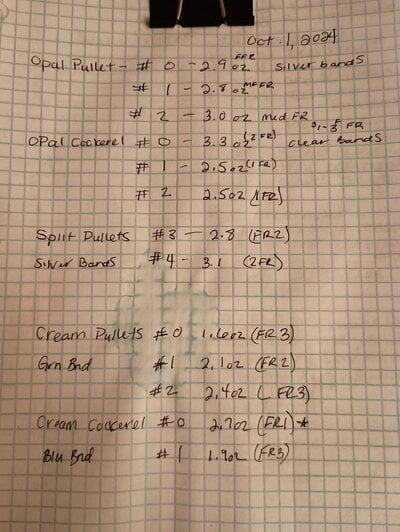 Oct. 1, 2024
Opal Pullet - # 0 - 2.9 oz FFR Silver bands
# 1 - 2.8 oz MFFR
# 2 - 3.0 oz med FR
OPal Cockerel # 0 - 3.3 oz (2 FR) clear Bands
# 1 - 2.5oz (1FR)
# 2 2.5oz (1FR)
Split Pullets #3 - 2.8 (FR2)
Silver Bands #4 - 3.1 (2FR)
Cream Pullets #0 1.6oz (FR3)
Grn Bnd #1 2.1oz (FR2)
#2 2.4oz (FR3)
Cream Cockerel #0 2.7oz (FR1)*
Blu Bnd #1 1.9oz (FR3)